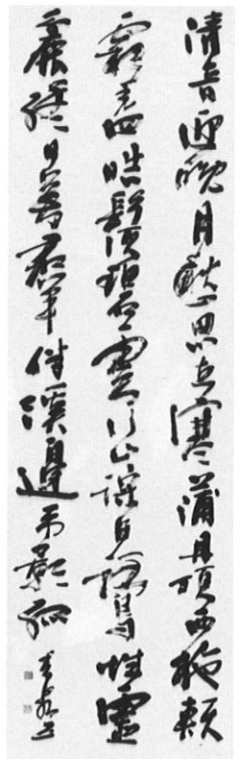 清音迎晚月愁思立寒蒲丹頂西施頰
霜毛四皓鬚碧雲行止躁白鷺性靈
終日無群伴溪邊弔影孤